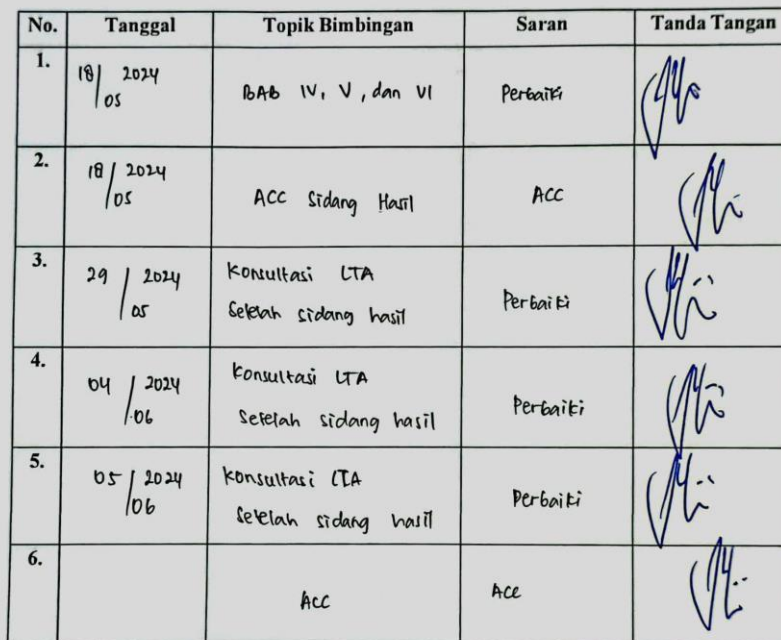 No. Tanggal Topik Bimbingan Saran Tanda Tangan
1. 18/05 2024 BAB IV, V, dan VI Perbaiki
2. 18/05 2024 ACC Sidang Hasil ACC
3. 29/05 2024 Konsultasi LTA Perbaiki
Setelah sidang hasil
4. 04/06 2024 Konsultasi LTA Perbaiki
Setelah sidang hasil
5. 05/06 2024 Konsultasi LTA Perbaiki
Setelah sidang hasil
6. ACC ACC